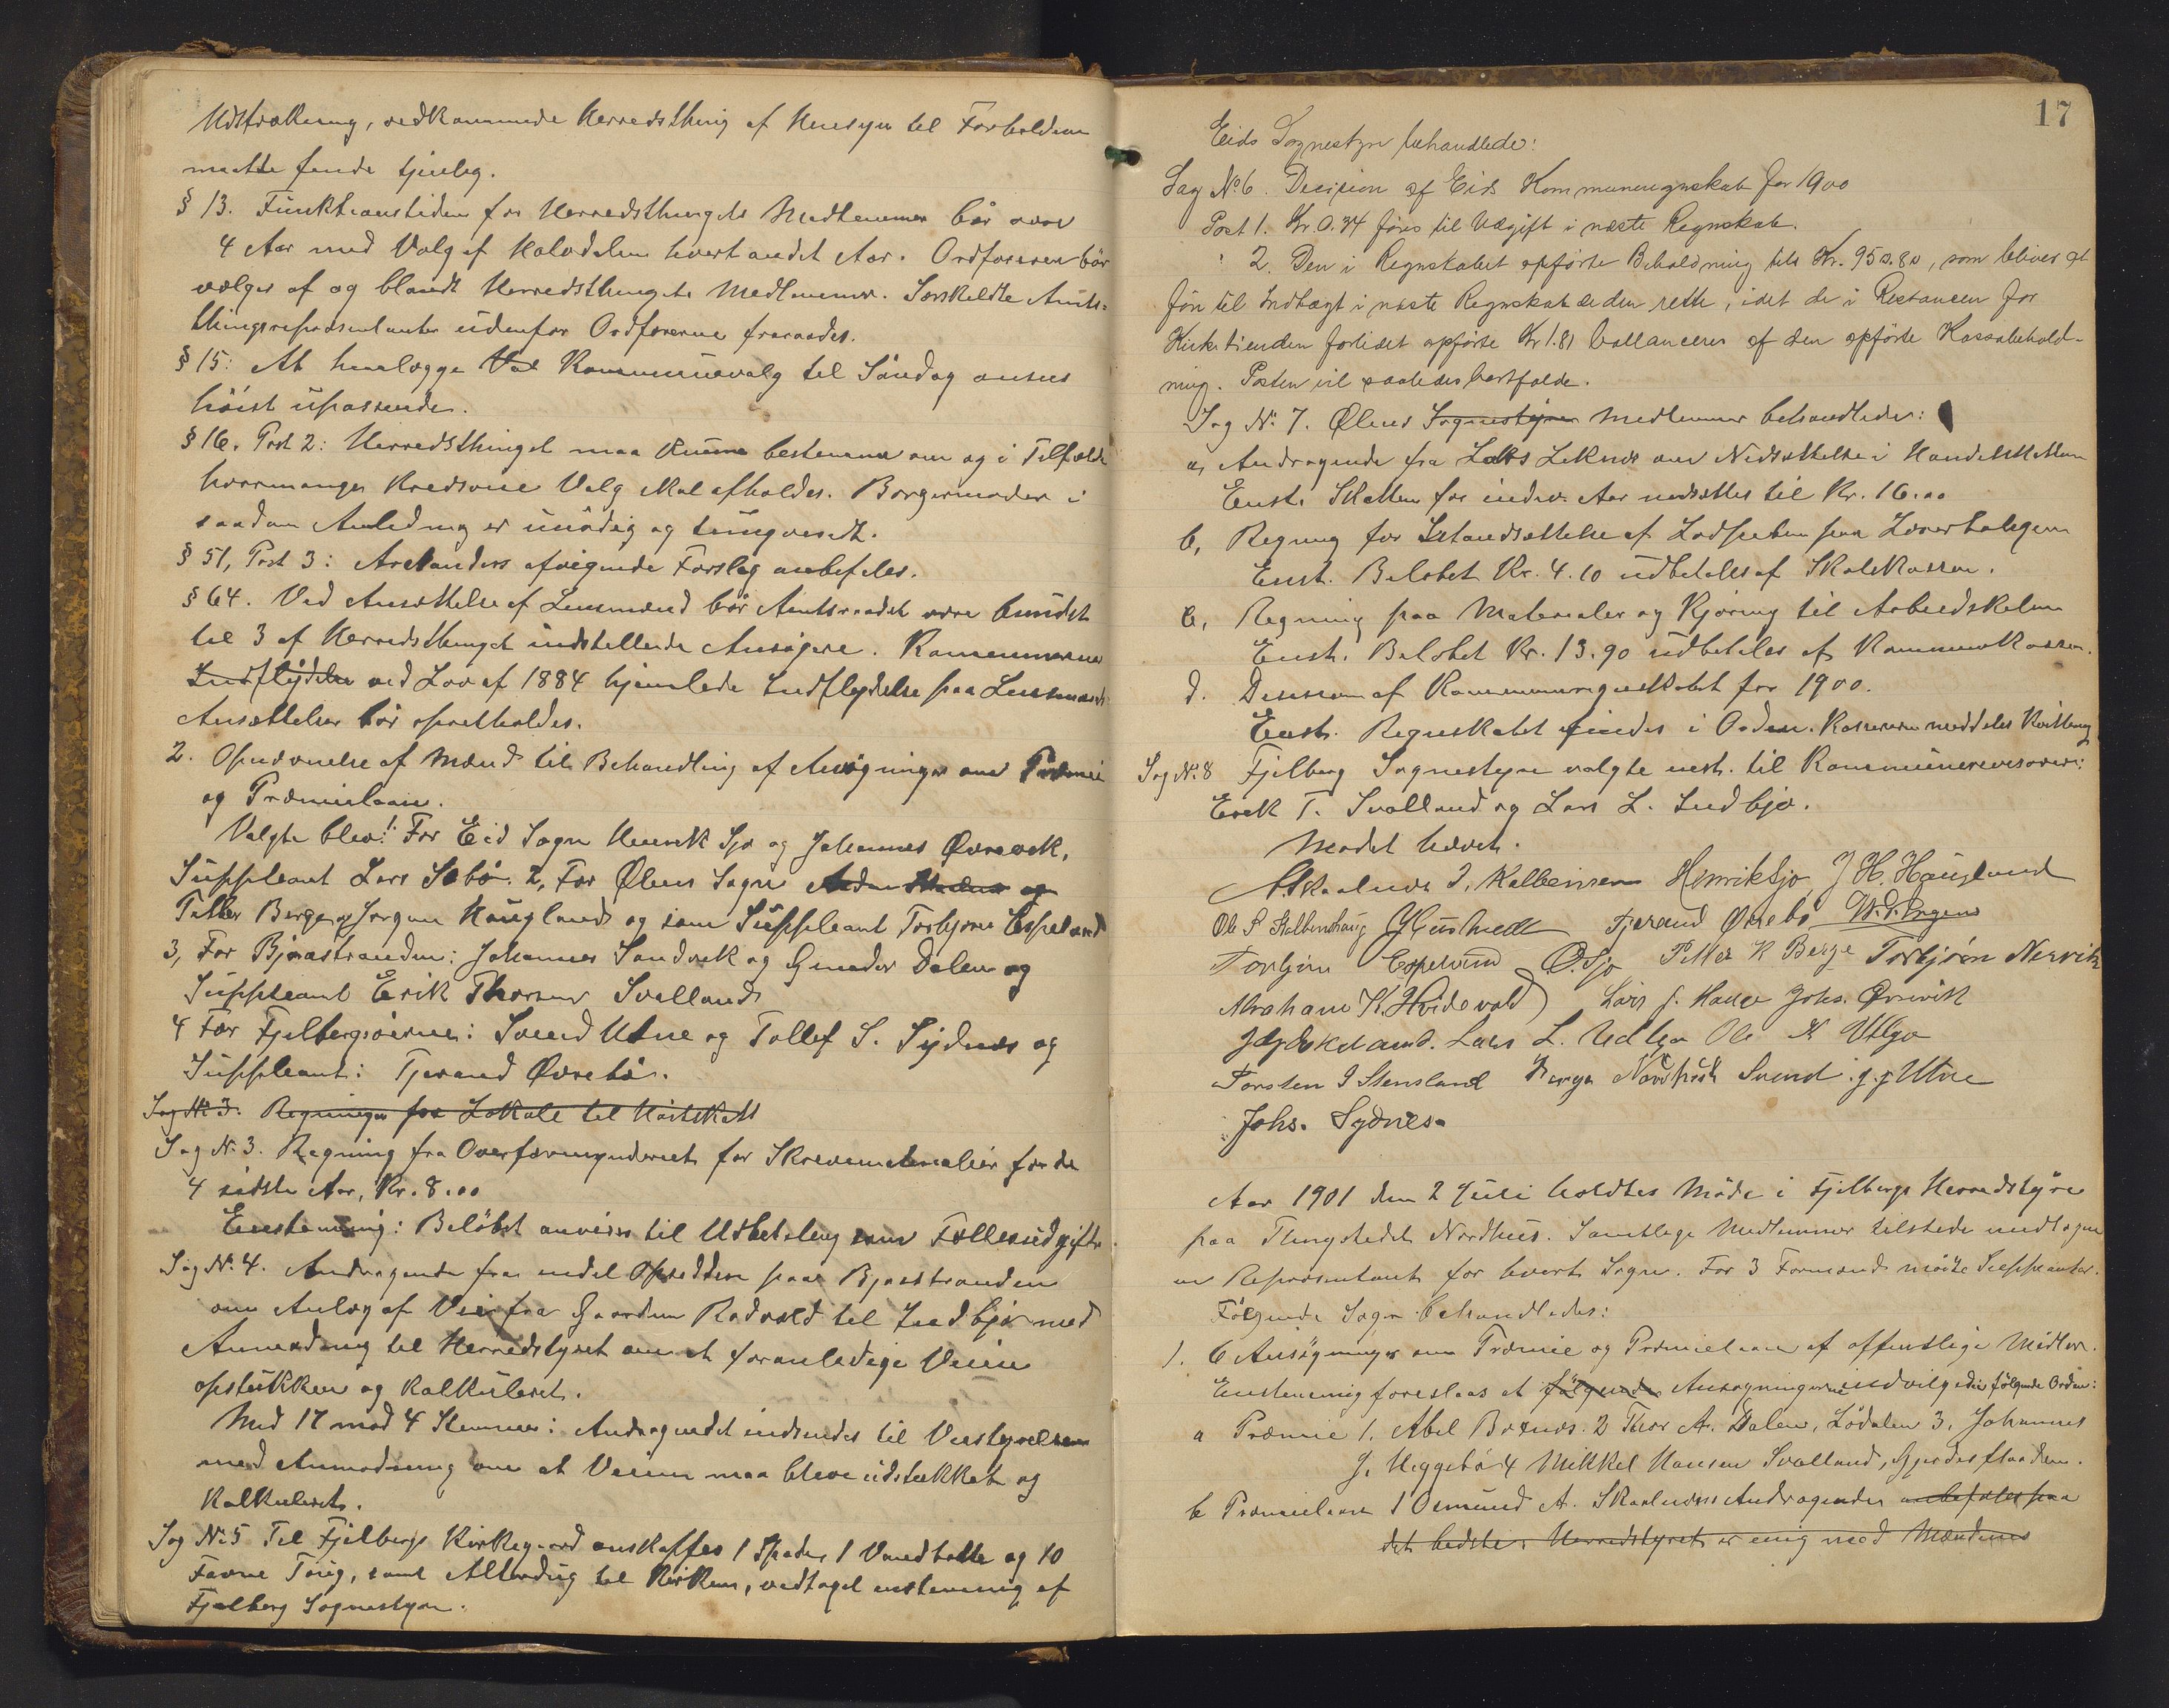 Udstrækning, vedkommende Herredsthing af Hensyn til Forholdene
maatte finde tjenlig.
§ 13. Funktionstiden for Herredsthingets Medlemmer bör være
4 Aar med Valg af Halvdelen hvert andet Aar. Ordföreren bör
vælges af og blandt Herredsthingets Medlemmer. Særskildte Amts-
thingsrepræsentanter udenfor Ordförerne fraraades.
§ 15: At henlægge Val Kommunevalg til Söndag ansees
höist upassende.
§ 16. Post 2: Herredsthinget maa kunne bestemme om og i Tilfælde
hvormange Kredsvise Valg skal afholdes. Borgermöder i
saadan Anledning er unödig og tungvindt.
§ 51, Post 3: Arctanders afvigende Forslag anbefales.
§ 64. Ved Ansættelse af Lensmænd bör Amtsraadet være bundet
til 3 af Herredsthinget indstillede Ansögere. Kommunernes
Indflydelse ved Lov af 1884 hjemlede Indflydelse paa Lensmands
Ansættelser bör opretholdes.
2. Opnævnelse af Mænd til Behandling af Ansögninger om Præmie
og Præmielaan.
Valgte blev: 1. For Eid Sogn Henrik Sjo og Johannes Övrevik,
Suppleant Lars Sebö. 2, For Ølens Sogn
Petter Berge og Jörgen Haugland og som Suppleant Torbjörn Espeland
3, For Bjoastranden: Johannes Sandvik og Gunder Dalen og
Suppleant Erik Thorsen Svolland
4 For Fjelbergöierne: Svend Utne og Tollef S. Sydnes og
Suppleant: Tjerand Övrebö.
Sag N. 3. Regninger for Lokale til
Sag N. 3. Regning fra Overformynderiet for Skrivematerialier for de
4 sidste Aar, Kr. 8.00
Enstemmig: Belöbet anvises til Udbetaling som Fællesudgift
Sag N. 4. Andragende fra endel Opsiddere paa Bjoastranden
om Anlæg af Vei fra Gaarden Rødvold til Indbjo med
Anmodning til Herredstyret om at foranledige Veien
opstukken og kalkuleret.
Med 17 mod 4 Stemmer: Andragendet indsendes til Veistyrelsen
med Anmodning om at Veien maa blive udstukket og
Kalkuleret.
Sag N. 5 Til Fjelbergs Kirkegaard anskaffes 1 Spade, 1 og 10
Favne Toug, samt Alterdug til Kirken, vedtaget enstemmig af
Fjelberg Sognestyre.
17
Eids Sognestyre behandlede:
Sag No 6. Decision af Eids Kommuneregnskab for 1900
Post 1. Kr. 0.34 föres til Udgift i næste Regnskab.
" 2. Den i Regnskabet opförte Beholdning stor Kr. 950.80, som bliver at
före til Indtægt i næste Regnskab er den rette, idet de i Restancen for
Kirketienden forlidet opförte Kr 1.81 ballanceres af den opförte Kassabehold-
ning. Posten vil saaledes bortfalde.
Sag No 7. Ølens Sognestyre Medlemmer behandlede:
a, Andragende fra Lars Leknes om Nedsættelse i Handelsskatten
Enst. Skatten for indev. Aar nedsættes til Kr. 16.00
b, Regning for Istandsættelse af Ladstuben paa Lærerboligen
Enst. Belöbet Kr. 4.10 udbetales af Skolekassen.
c, Regning paa Materialer og Kjöring til Arbeidskolen
Enst. Belöbet Kr. 13.90 udbetales af Kommunekassen.
d. Decision af Kommuneregnskabet for 1900.
Enst. Regnskabet findes i Orden. Kassereren meddeles Kvittering
Sag N. 8 Fjelberg Sognestyre valgte enst. til Kommunerevisorer:
Erik T. Svolland og Lars L. Indbjo.
Mödet hævet.
A. Skaalnes I. Kalbeinsen Henrik Sjo J. H. Haugland
Ole S Kalbenhaug Tjerand Övrebö
Torbjörn Espeland O. Sjo Petter K Berge Torbjörn Nervik
Abraham K. Hvidevold Lars J. Hauge Johs. Örevik
Lars L. Indbjo Ole
Torsten I Stensland Svend J. J. Utne
Johs. Sydnes.
Aar 1901 den 2 Juli holdtes Möde i Fjelbergs Herredstyre
paa Thingstedet Nordhus. Samtlige Medlemmer tilstede undtagen
en Repræsentant for hvert Sogn. For 3 Formænd mödte Suppleanter.
Fölgende Sager behandledes:
1. 6 Ansögninger om Præmie og Præmielaan af offentlige Midler.
Enstemmig foreslaaes at fölgende Ansögningerne indvilges i fölgende Orden:
a Præmie 1. Abel Börnes. 2 Thor A. Dalen, Lödalen 3. Johannes
J. Heggebö 4 Mikkel Hansen Svolland, Gjerdesflaaden.
b Præmielaan 1 Osmund A. Skaalnæs Andragender anbefales paa
det bedste. Herredstyret er enig med Mændenes